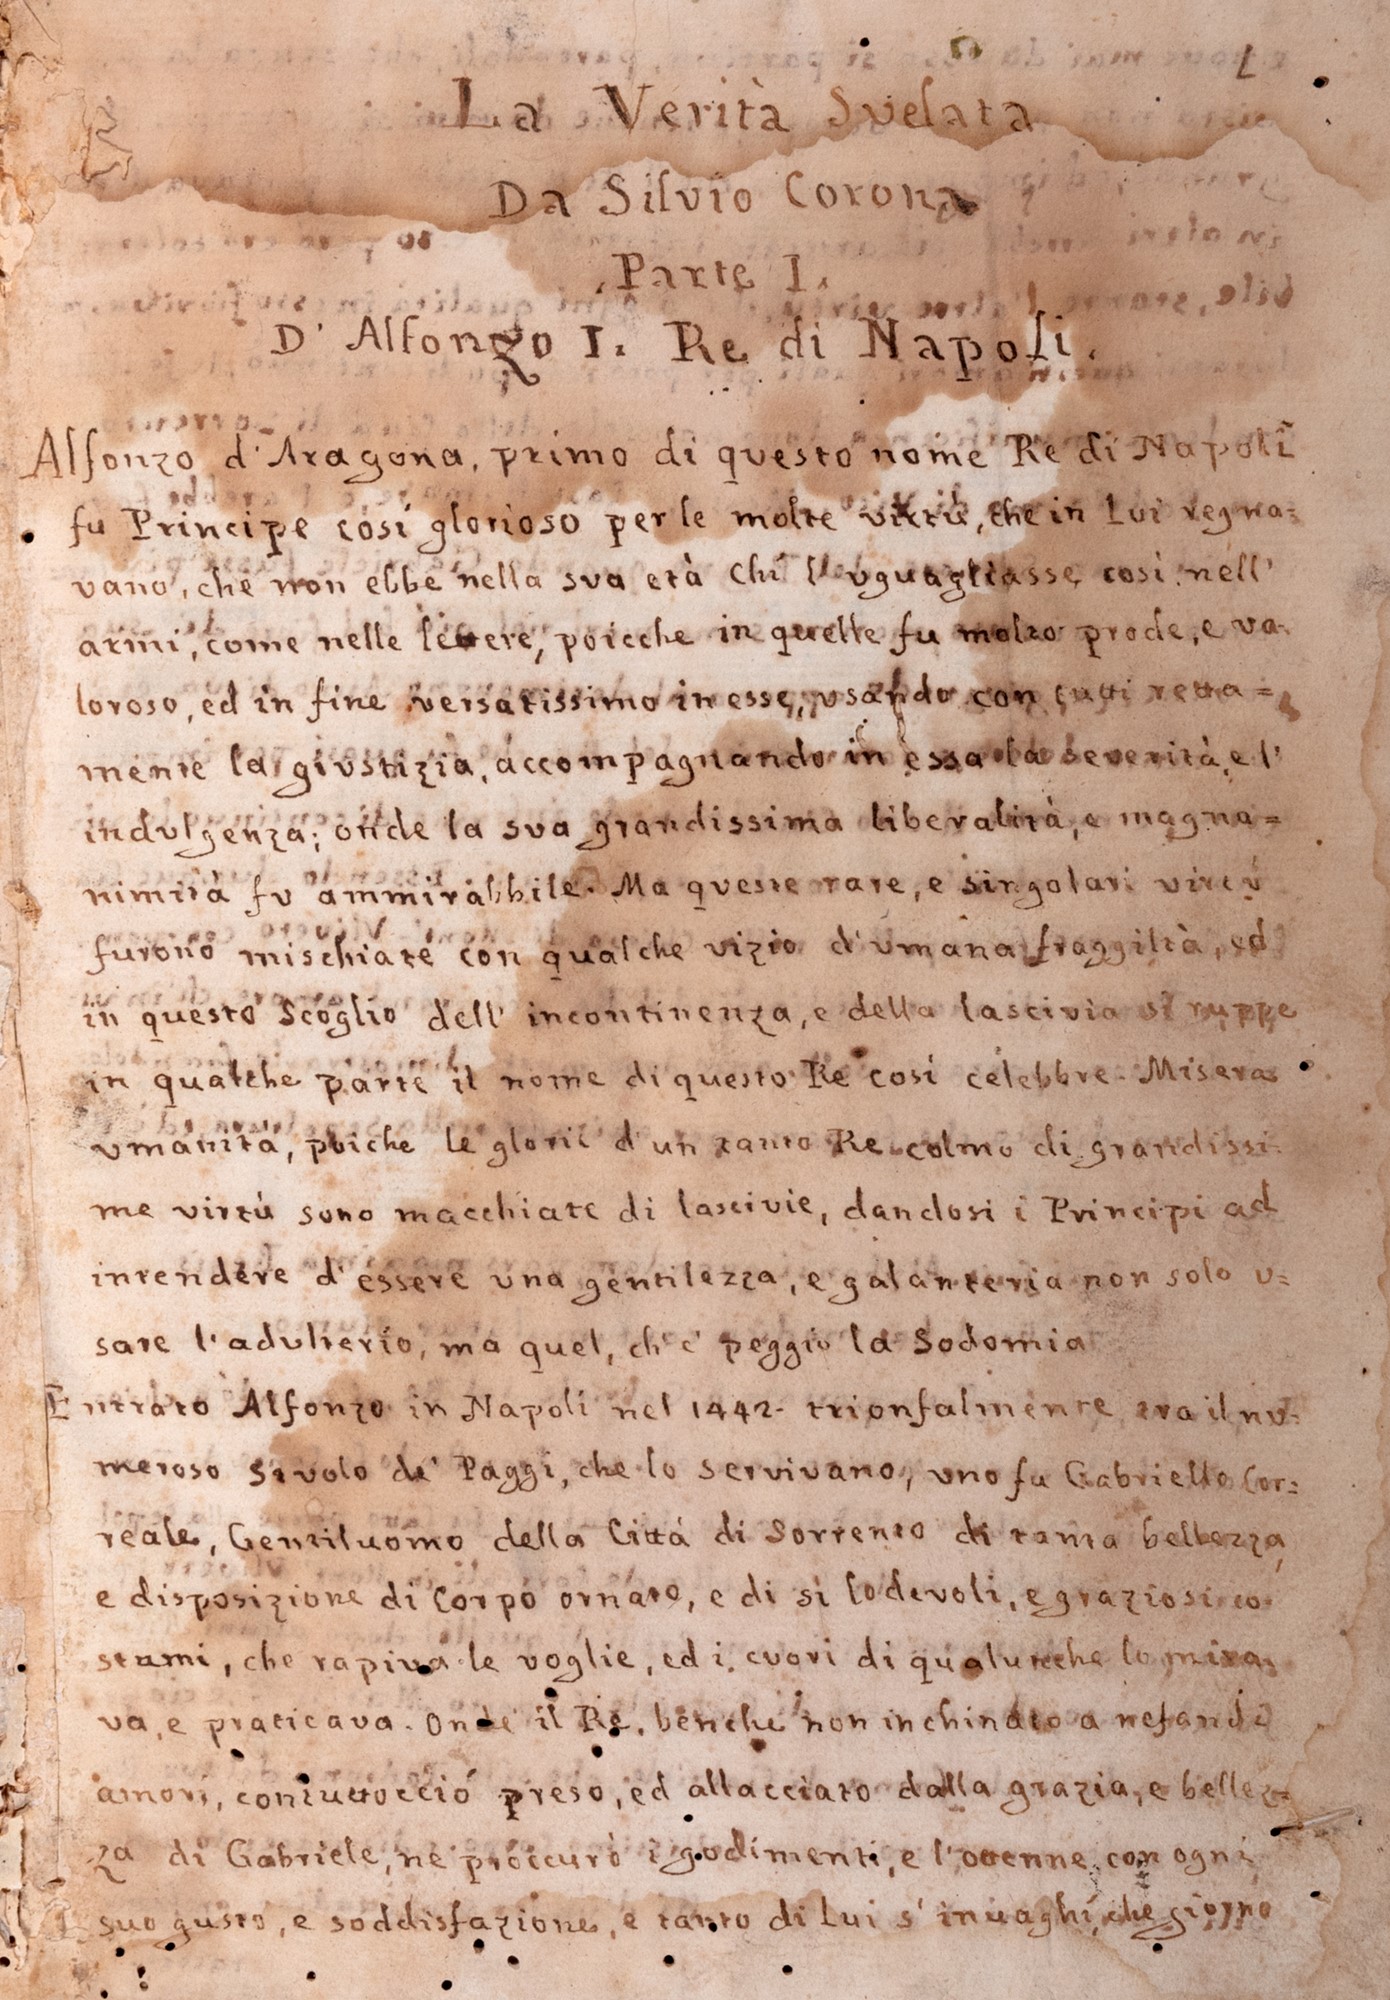 1
La Verità Svelata
Da Silvio Corona
Parte I.
D' Alfonzo I. Re di Napoli.
Alfonzo d'Aragona, primo di questo nome Re di Napoli
fu Principe così glorioso per le molte virtù, che in Lui regna=
vano, che non ebbe nella sva età Chi l'vguagliasse così nell'
armi, come nelle lettere, poicche in quelle fu molto prode, e va=
loroso, ed in fine versatissimo in esse, vsando con tutti retta=
mente la givstizia, accompagnando in essa la severità, e l'
indvlgenza; onde la sva grandissima liberalità, e magna=
nimità fv ammirabbile. Ma queste rare, e singolari virtù
furono mischiate con qualche vizio d'vmana fraggiltà, ed
in questo Scoglio dell' incontinenza, e della lascivia si ruppe
in qualche parte il nome di questo Re così celebbre. Misera
vmanità, poiche le glorie d'un tanto Re colmo di grandissi=
me virtù sono macchiate di lascivie, dandosi i Principi ad
intendere d'essere vna gentilezza, e galanteria non solo v=
sare l'adulterio, ma quel, ch'è peggio la Sodomia
Entrato Alfonzo in Napoli nel 1442. trionfalmente era il nv=
meroso stvolo de' Paggi, che lo servivano, vno fu Gabriello Cor=
reale, Gentiluomo della Città di Sorrento di tanta bellezza,
e disposizione di Corpo ornato, e di sì lodevoli, e graziosi co=
stumi, che rapiva le voglie, ed i cvori di qualunche lo mira=
va, e praticava. Onde il Re, benche non inchinato a nefandi
amori, contuttocciò preso, ed allacciato dalla grazia, e bellez=
za di Gabriele, ne proccurò i godimenti, e l'ottenne con ogni
suo gusto, e soddisfazione, e tanto di Lui s'invaghì, che giorno